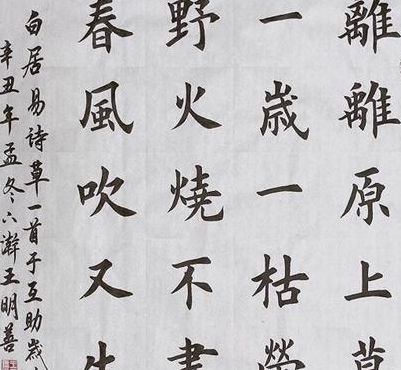 離離原上草
一歲一枯榮
野火燒不盡
春風吹又生
白居易詩草一首于互助歲
辛丑年孟冬六王明善